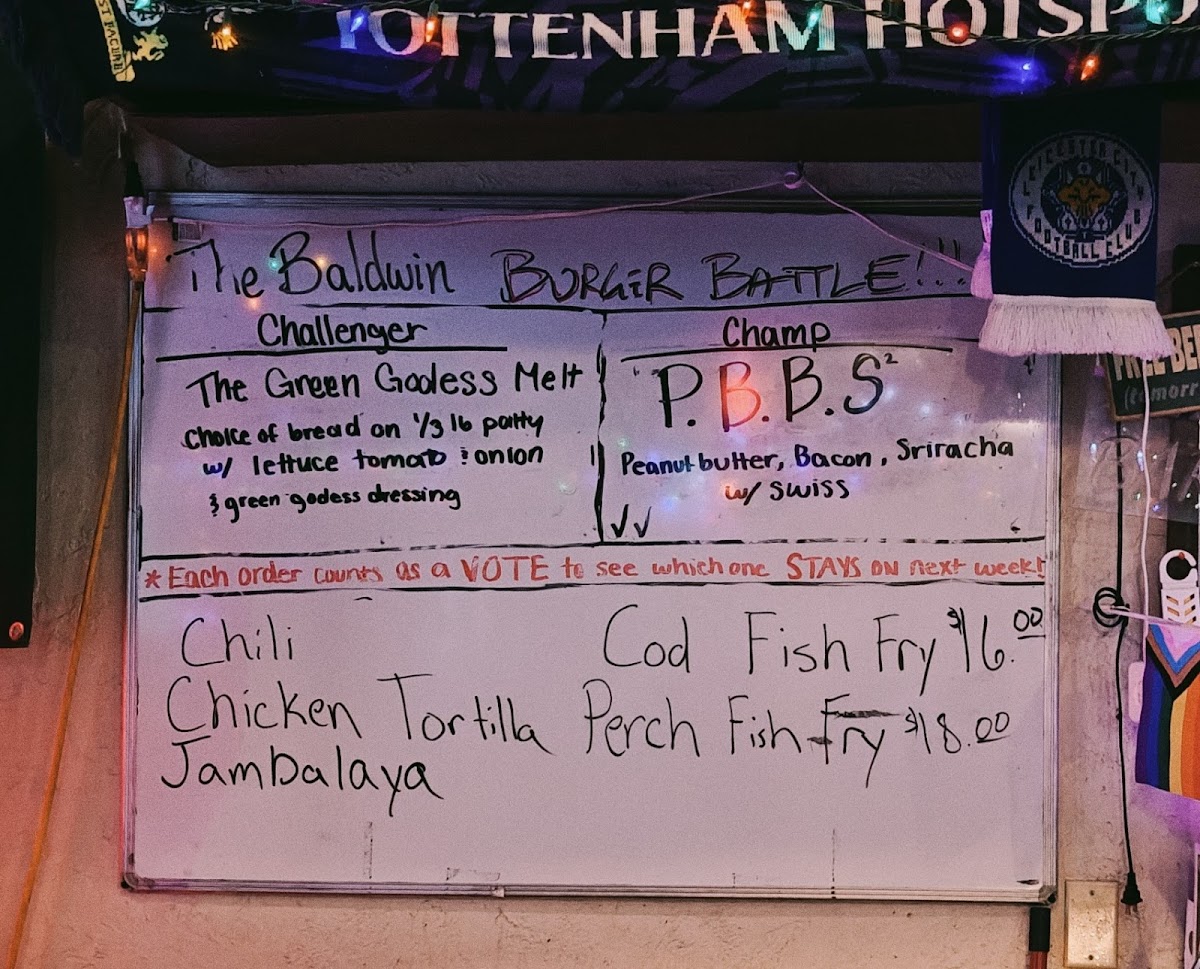 TOTTENHAM HOTSPU
LEICESTER CITY
FOOTBALL CLUB
The Baldwin BURGER BATTLE!!!
Challenger
The Green Godess Melt
Choice of bread on 1/3 lb patty
w/ lettuce tomato & onion
& green godess dressing
Champ
P.B.B.S²
Peanut butter, Bacon, Sriracha
w/ SWISS
*Each order counts as a VOTE to see which one STAYS ON next week!
Chili
Chicken Tortilla
Jambalaya
Cod Fish Fry $16.00
Perch Fish Fry $18.00
FREE BE
(tomorr